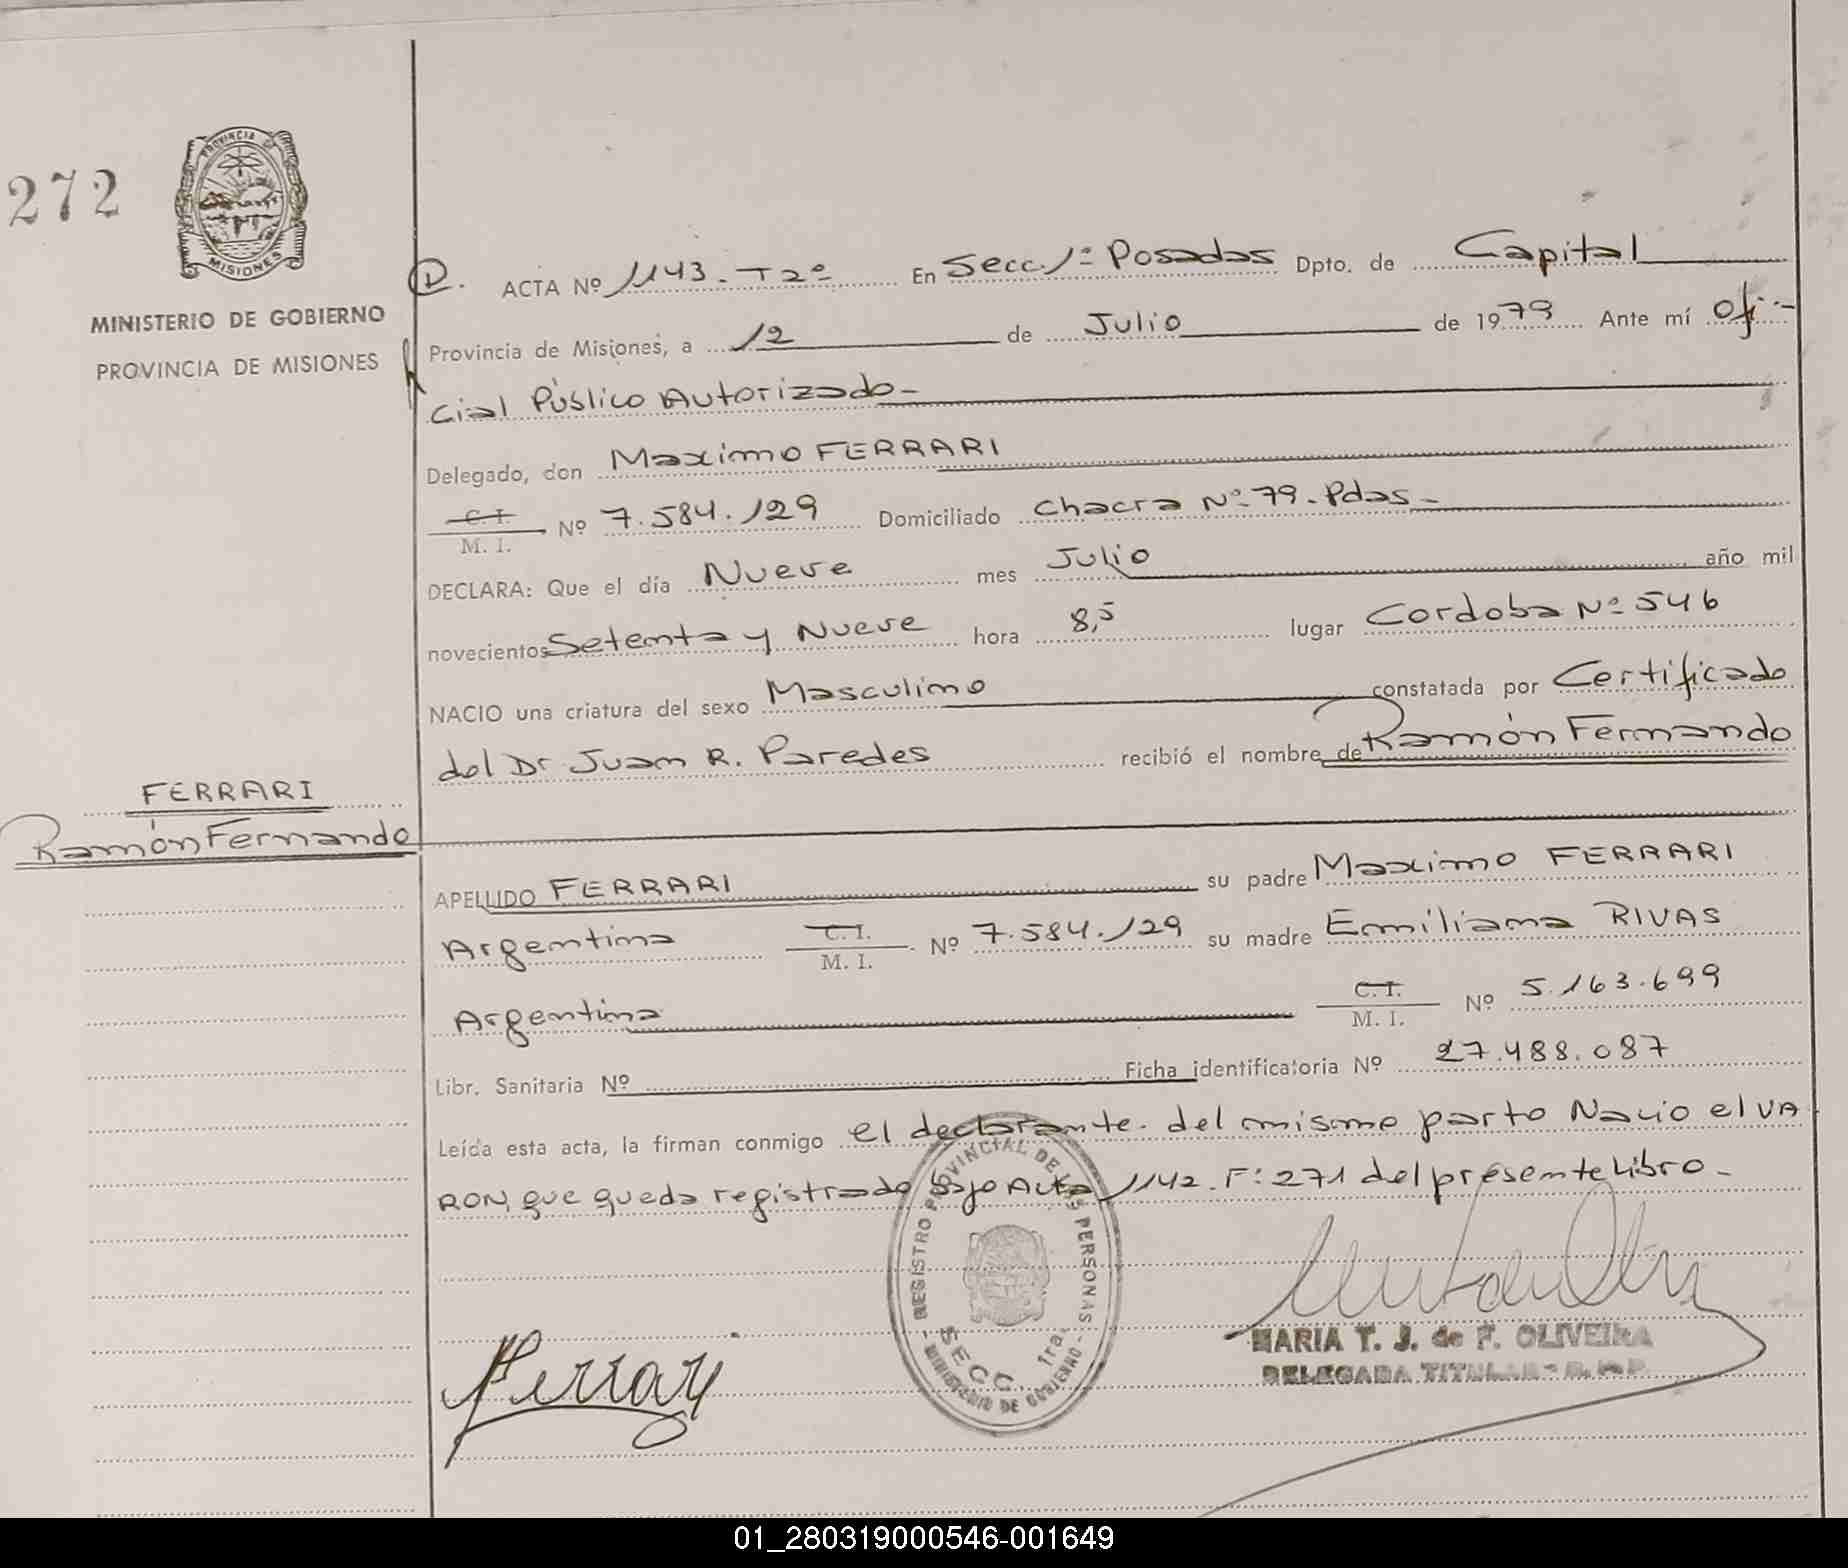 272
PROVINCIA DE
MISIONES
MINISTERIO DE GOBIERNO
PROVINCIA DE MISIONES
D. ACTA Nº 1143.-T2º En Secc 1ª Posadas Dpto. de Capital
Provincia de Misiones, a 12 de Julio de 1979 Ante mí Ofi-
cial Público Autorizado-
Delegado, don Maximo FERRARI
C. I.
M. I. Nº 7.584.129 Domiciliado chacra Nº 79.Pdas-
DECLARA: Que el día Nueve mes Julio año mil
novecientos Setenta y Nueve hora 8,5 lugar Cordoba Nº 546
NACIO una criatura del sexo Masculino constatada por Certificado
del Dr Juan R. Paredes recibió el nombre de Ramón Fernando
FERRARI
Ramón Fernando
APELLIDO FERRARI su padre Maximo FERRARI
Argentina C. I.
M. I. Nº 7.584.129 su madre Emiliana RIVAS
Argentina C. I.
M. I. Nº 5.163.699
Libr. Sanitaria Nº Ficha identificatoria Nº 27.488.087
Leída esta acta, la firman conmigo el declarante. del mismo parto Nacio el VA
RON, que queda registrado bajo Acta 1142. F: 271 del presente Libro-
REGISTRO PROVINCIAL DE LAS PERSONAS
SECC. 1ra.
MINISTERIO DE GOBIERNO
Ferrari
MARIA T. J. de F. OLIVEIRA
DELEGADA TITULAR
01_280319000546-001649